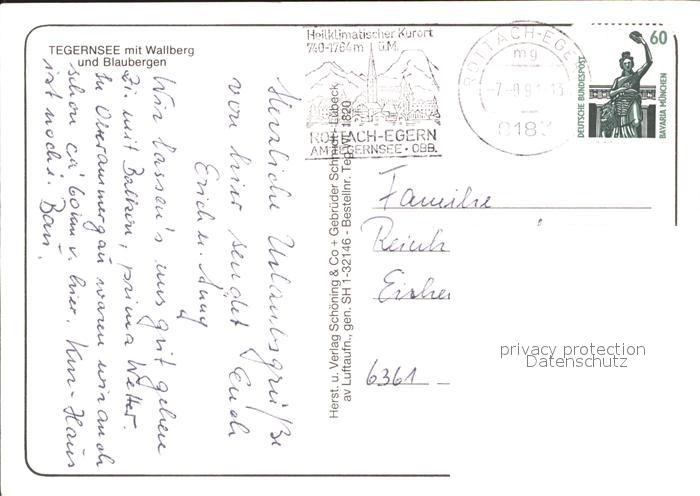 TEGERNSEE mit Wallberg
und Blaubergen
Heilklimatischer Kurort
740-1764m ü.M.
ROTTACH-EGERN
AM TEGERNSEE · OBB.
ROTTACH-EGE
mg
8183
60
DEUTSCHE BUNDESPOST
BAVARIA MÜNCHEN
Herzliche Urlaubsgrüße
von hier sendet Euch
Erich u. Anny
Wir lassen's uns gut gehen
Zi. mit Balkon, prima Wetter.
In Oberammergau waren wir auch
schon ca 60 km v. hier. Kur-Haus
ist noch i. Bau.
Herst. u. Verlag Schöning & Co + Gebrüder Schmidt, Lübeck
av Luftaufn., gen. SH 1-32146 - Bestellnr. Teg W 1820
Familie
6361
privacy protection
Datenschutz